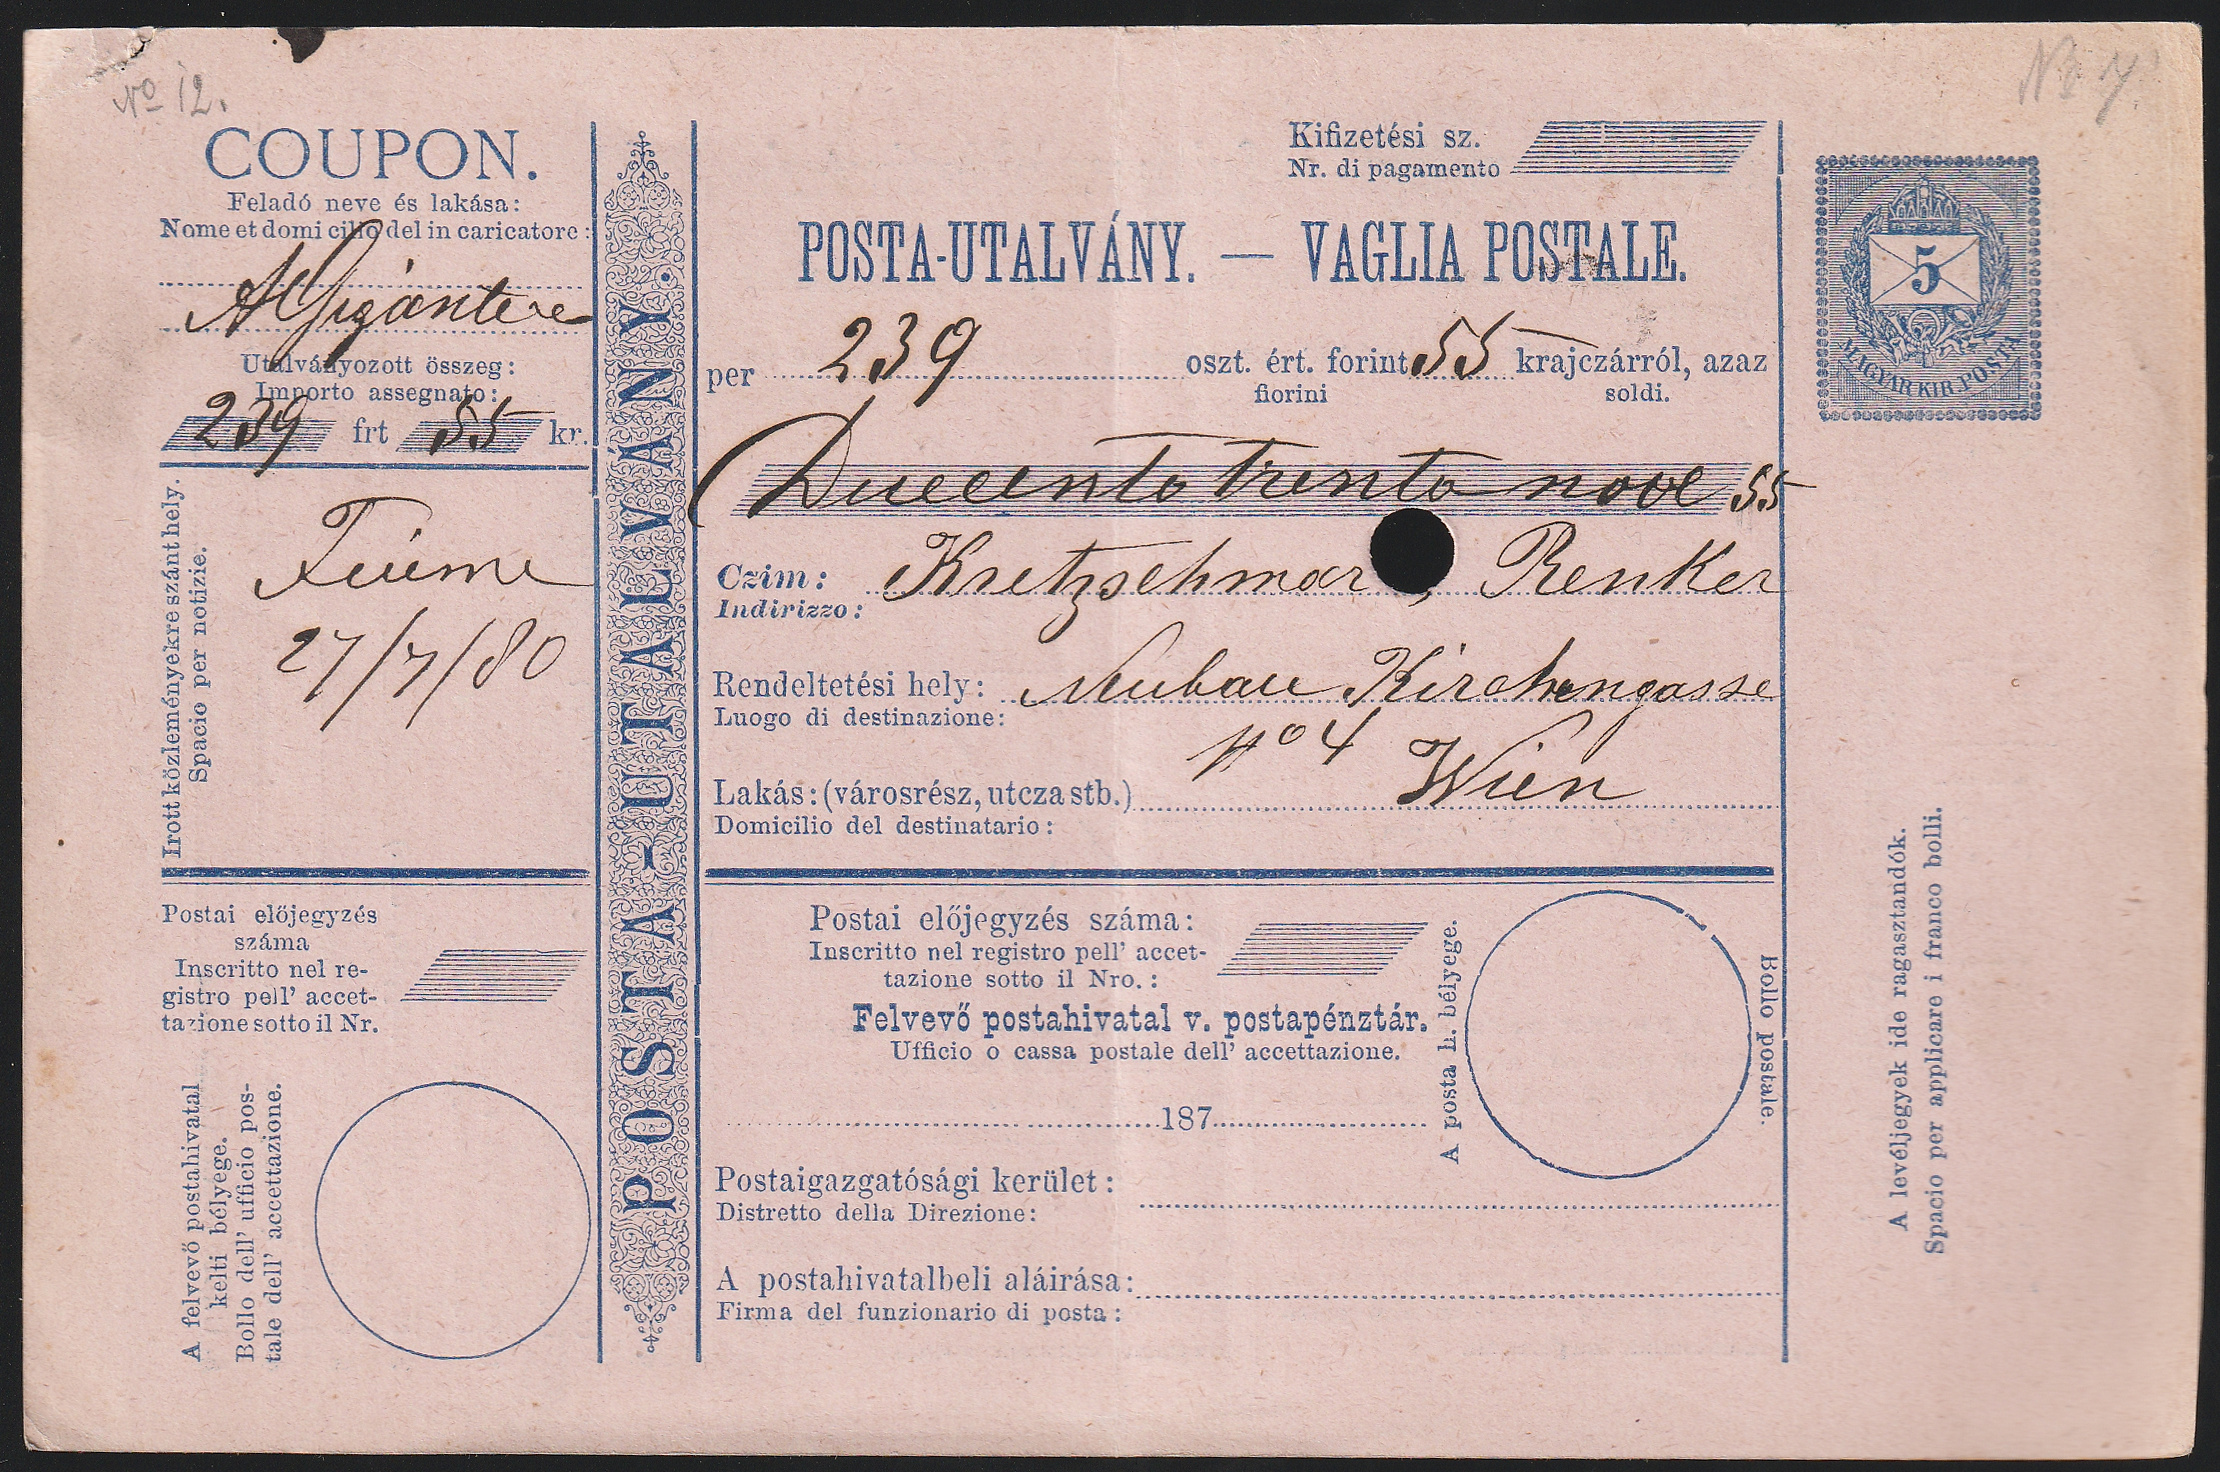 No 12.
COUPON.
Feladó neve és lakása:
Nome et domi cilio del in caricatore:
AGigante
Utalványozott összeg:
Importo assegnato:
239 frt 55 kr.
Irott közleményekre szánt hely.
Spacio per notizie.
Fiume
27/7/80
Postai előjegyzés
száma
Inscritto nel re-
gistro pell' accet-
tazione sotto il Nr.
A felvevő postahivatal
kelti bélyege.
Bollo dell' ufficio pos-
tale dell' accettazione.
POSTA-UTALVÁNY.
Kifizetési sz.
Nr. di pagamento
POSTA-UTALVÁNY. — VAGLIA POSTALE.
per 239 oszt. ért. forint 55 krajczárról, azaz
fiorini soldi.
Duecento trenta nove 55
Czim: Kretzschmar, Renker
Indirizzo:
Rendeltetési hely: Neubau Kirchengasse
Luogo di destinazione:
No 4 Wien
Lakás: (városrész, utcza stb.)
Domicilio del destinatario:
Postai előjegyzés száma:
Inscritto nel registro pell' accet-
tazione sotto il Nro.:
Felvevő postahivatal v. postapénztár.
Ufficio o cassa postale dell' accettazione.
187
A posta h. bélyege.
Bollo postale.
Postaigazgatósági kerület:
Distretto della Direzione:
A postahivatalbeli aláirása:
Firma del funzionario di posta:
5
MAGYAR KIR. POSTA
A levéljegyek ide ragasztandók.
Spacio per applicare i franco bolli.